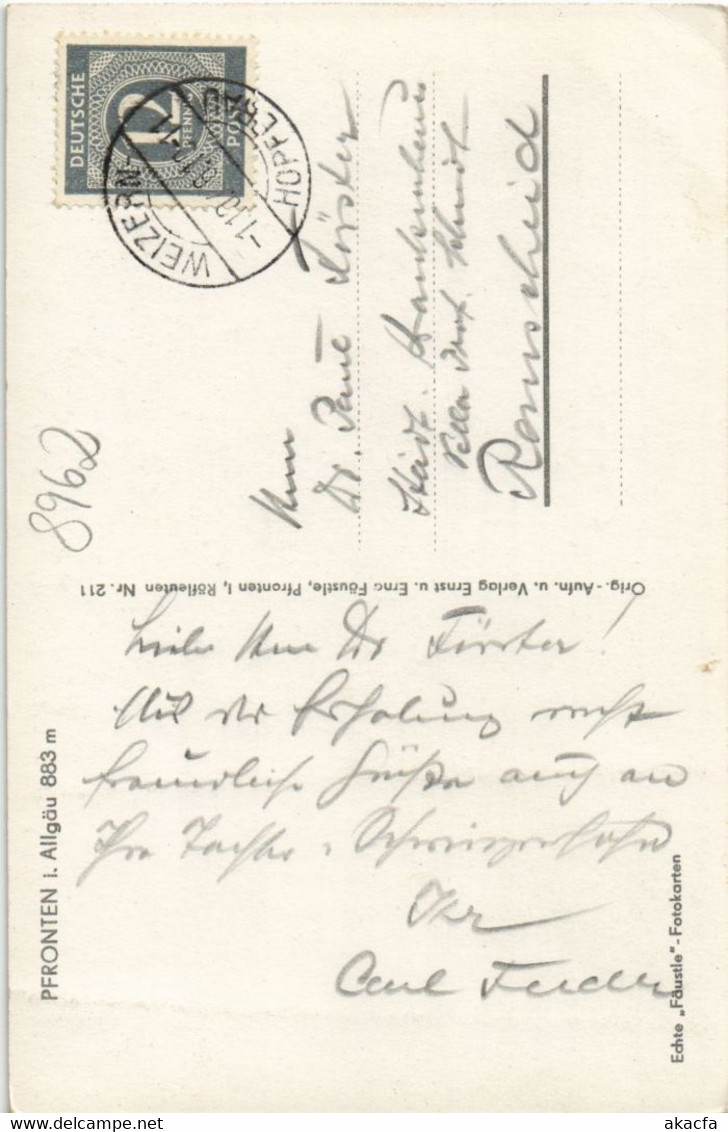 DEUTSCHE
12
PFENNIG
POST
WEIZERN
HOPFERAU
Herrn
Dr. Paul Förster
Städt. Krankenhaus
Villa Prof. Schmidt
Remscheid
8962
Orig.-Aufn. u. Verlag Ernst u. Erna Fäustle, Pfronten I, Röfleuten Nr. 211
Herr Dr Förster!
Aus der Erholung recht
freundliche Grüße auch an
Ihre Tochter u. Schwiegersohn
Ihr
Carl
PFRONTEN i. Allgäu 883 m
Echte „Fäustle"-Fotokarten
akacfa
delcampe.net
akacfa